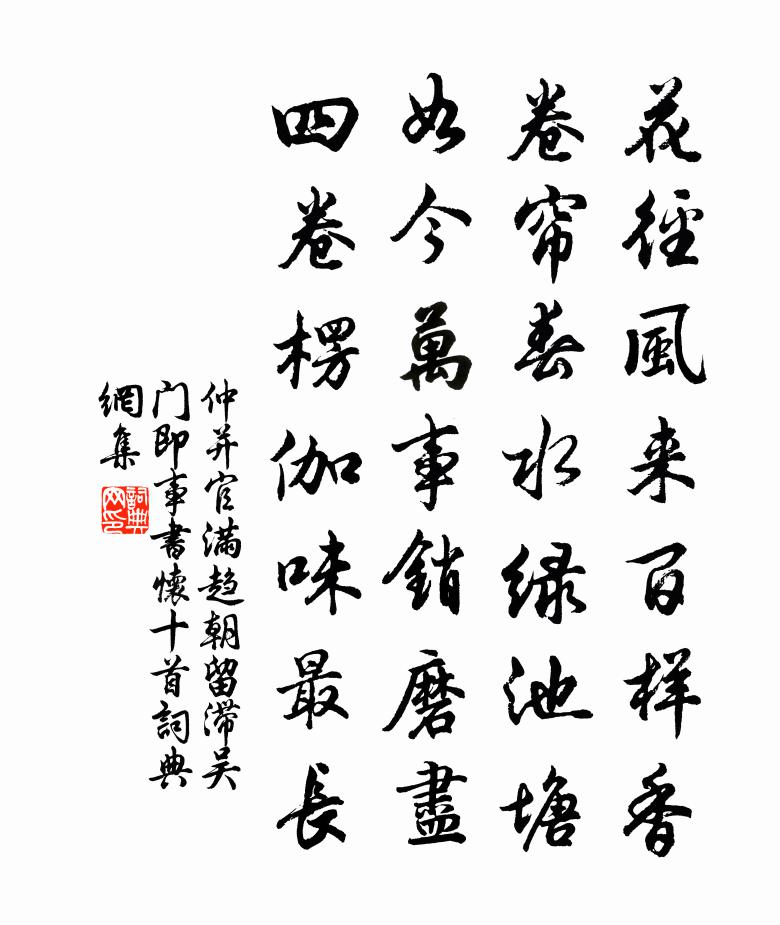 花徑風来百样香
卷帘春水绿池塘
如今萬事銷磨盡
四卷楞伽味最長
仲并官滿趋朝留滯吴
门即事書懷十首詞典
網集
詞典
网印